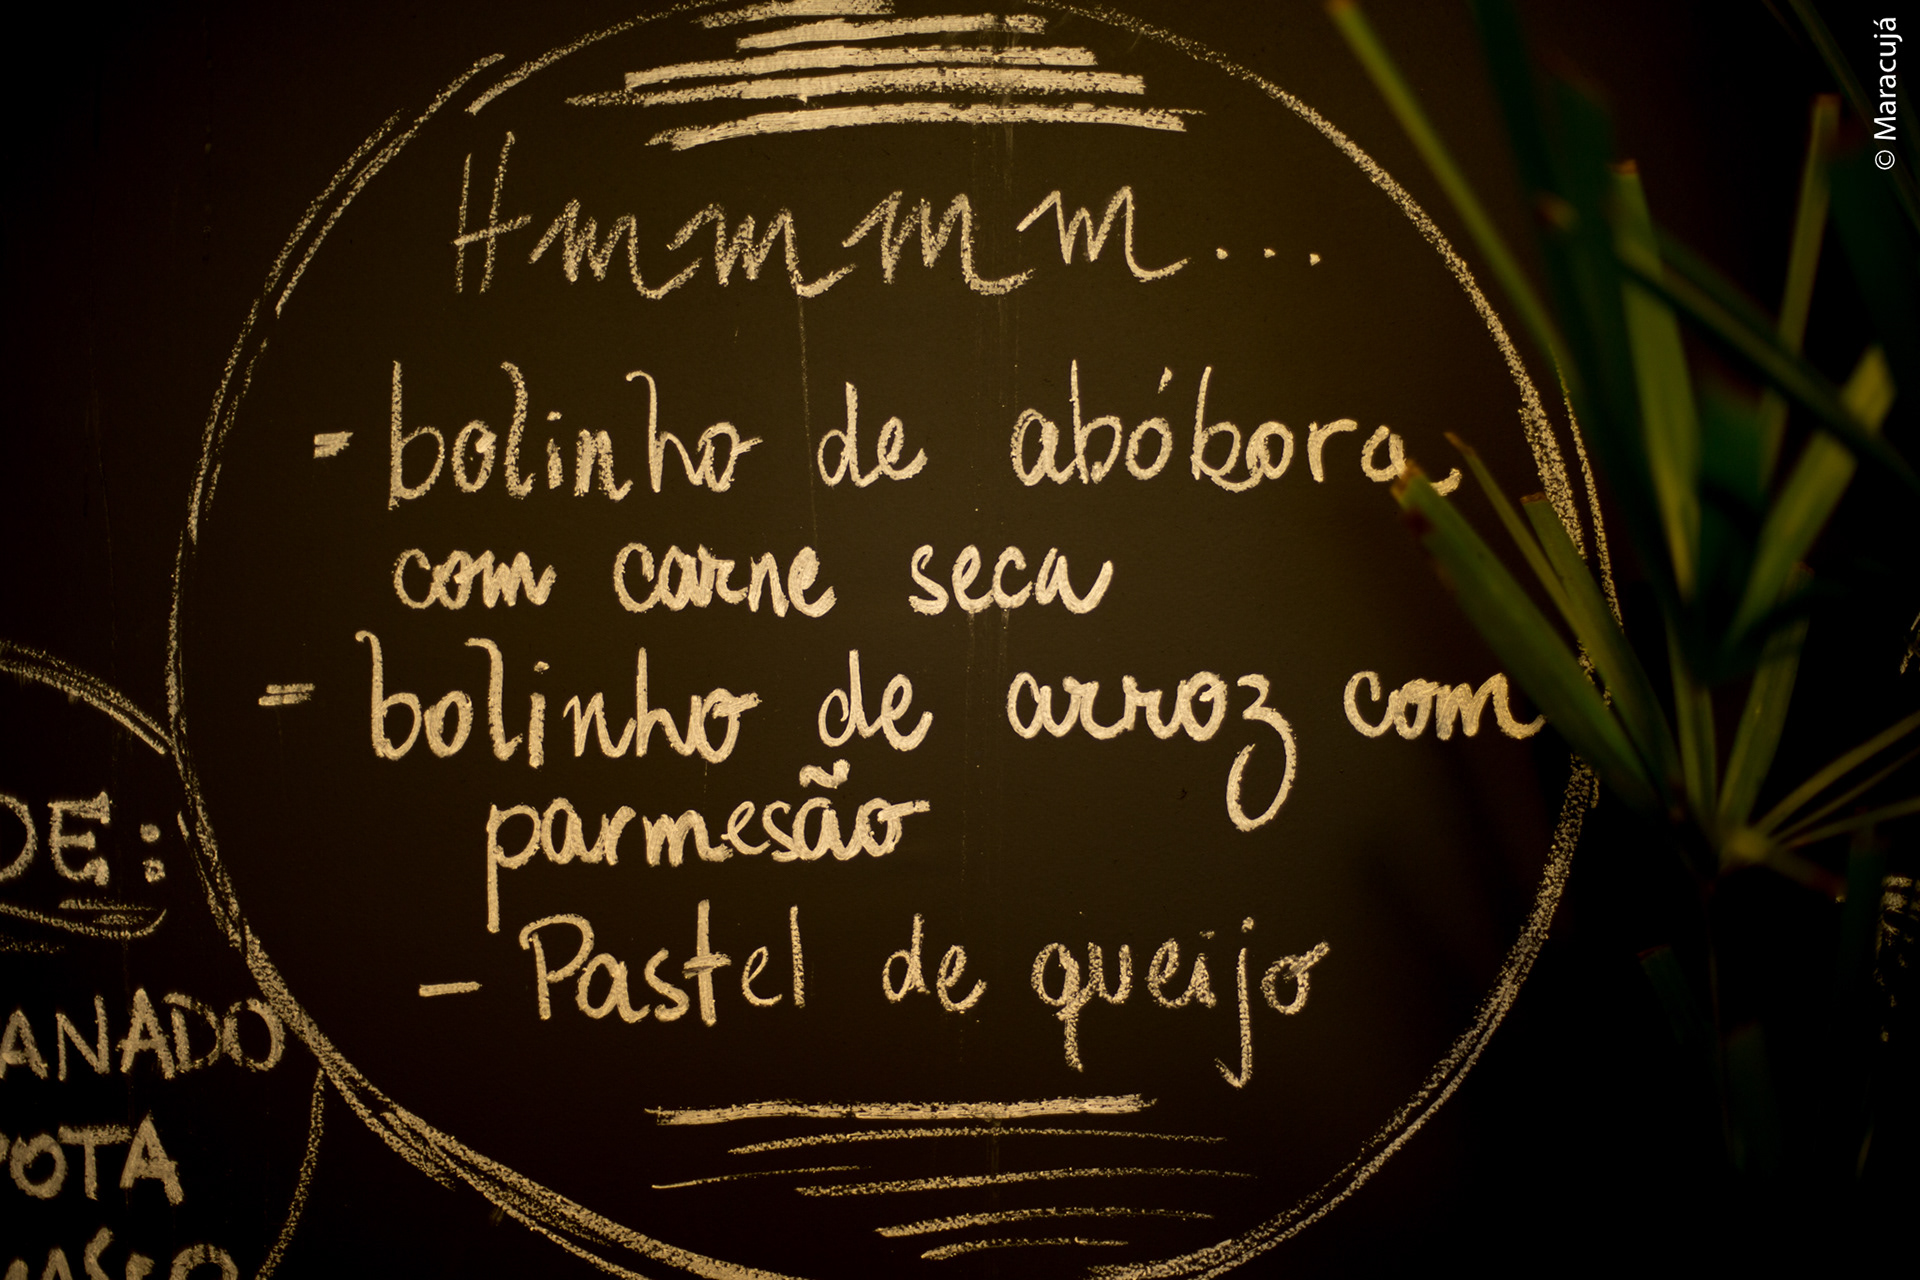 © Maracujá
Hmmmm...
- bolinho de abóbora
com carne seca
- bolinho de arroz com
parmesão
- Pastel de queijo
DE:
ANADO
POTA